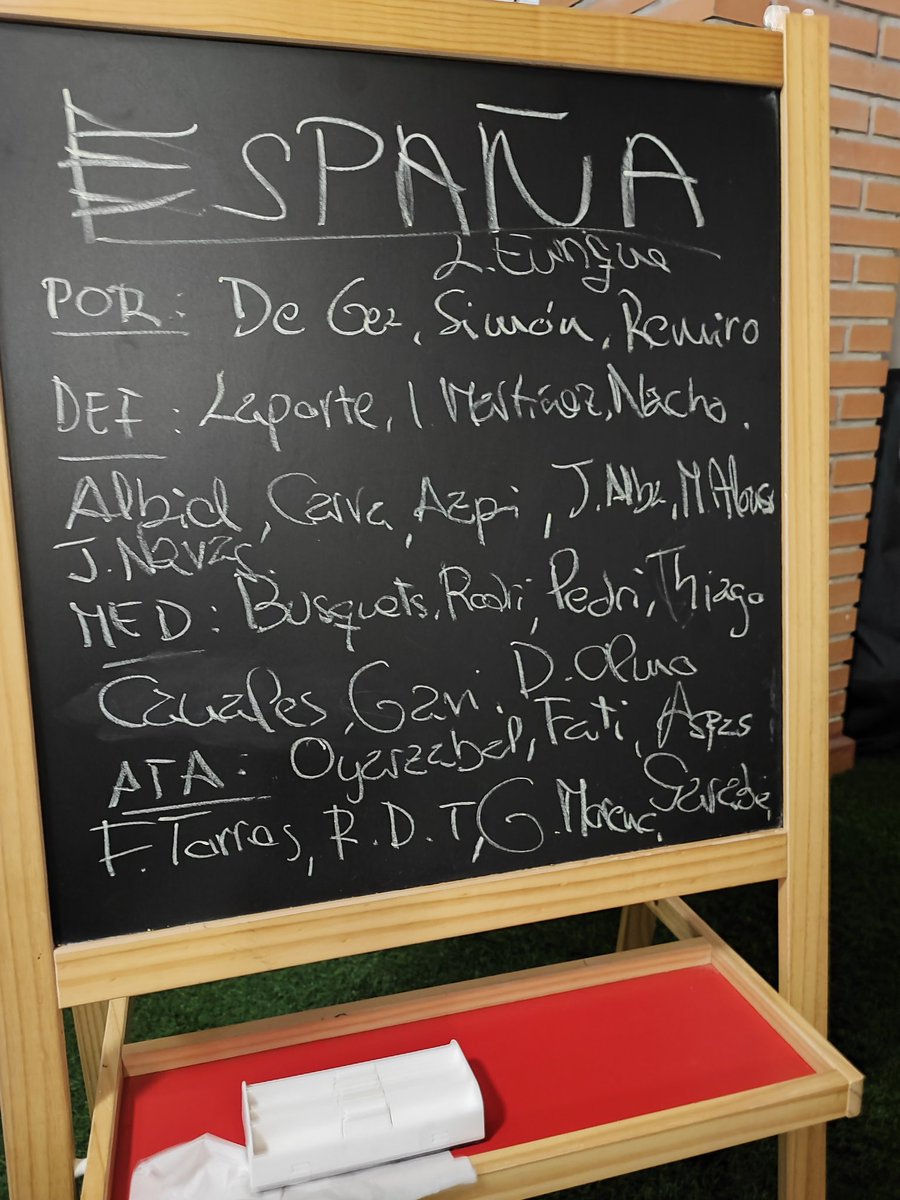 ESPAÑA
L. Enrique
POR: De Gea, Simón, Remiro
DEF: Laporte, I Martínez, Nacho.
Albiol, Carva, Azpi, J. Alba, M. Alonso
J. Navas
MED: Busquets, Rodri, Pedri, Thiago
Canales, Gavi, D. Olmo
ATA: Oyarzabal, Fati, Aspas
F. Torres, R.D.T, G. Moreno, Sarabia